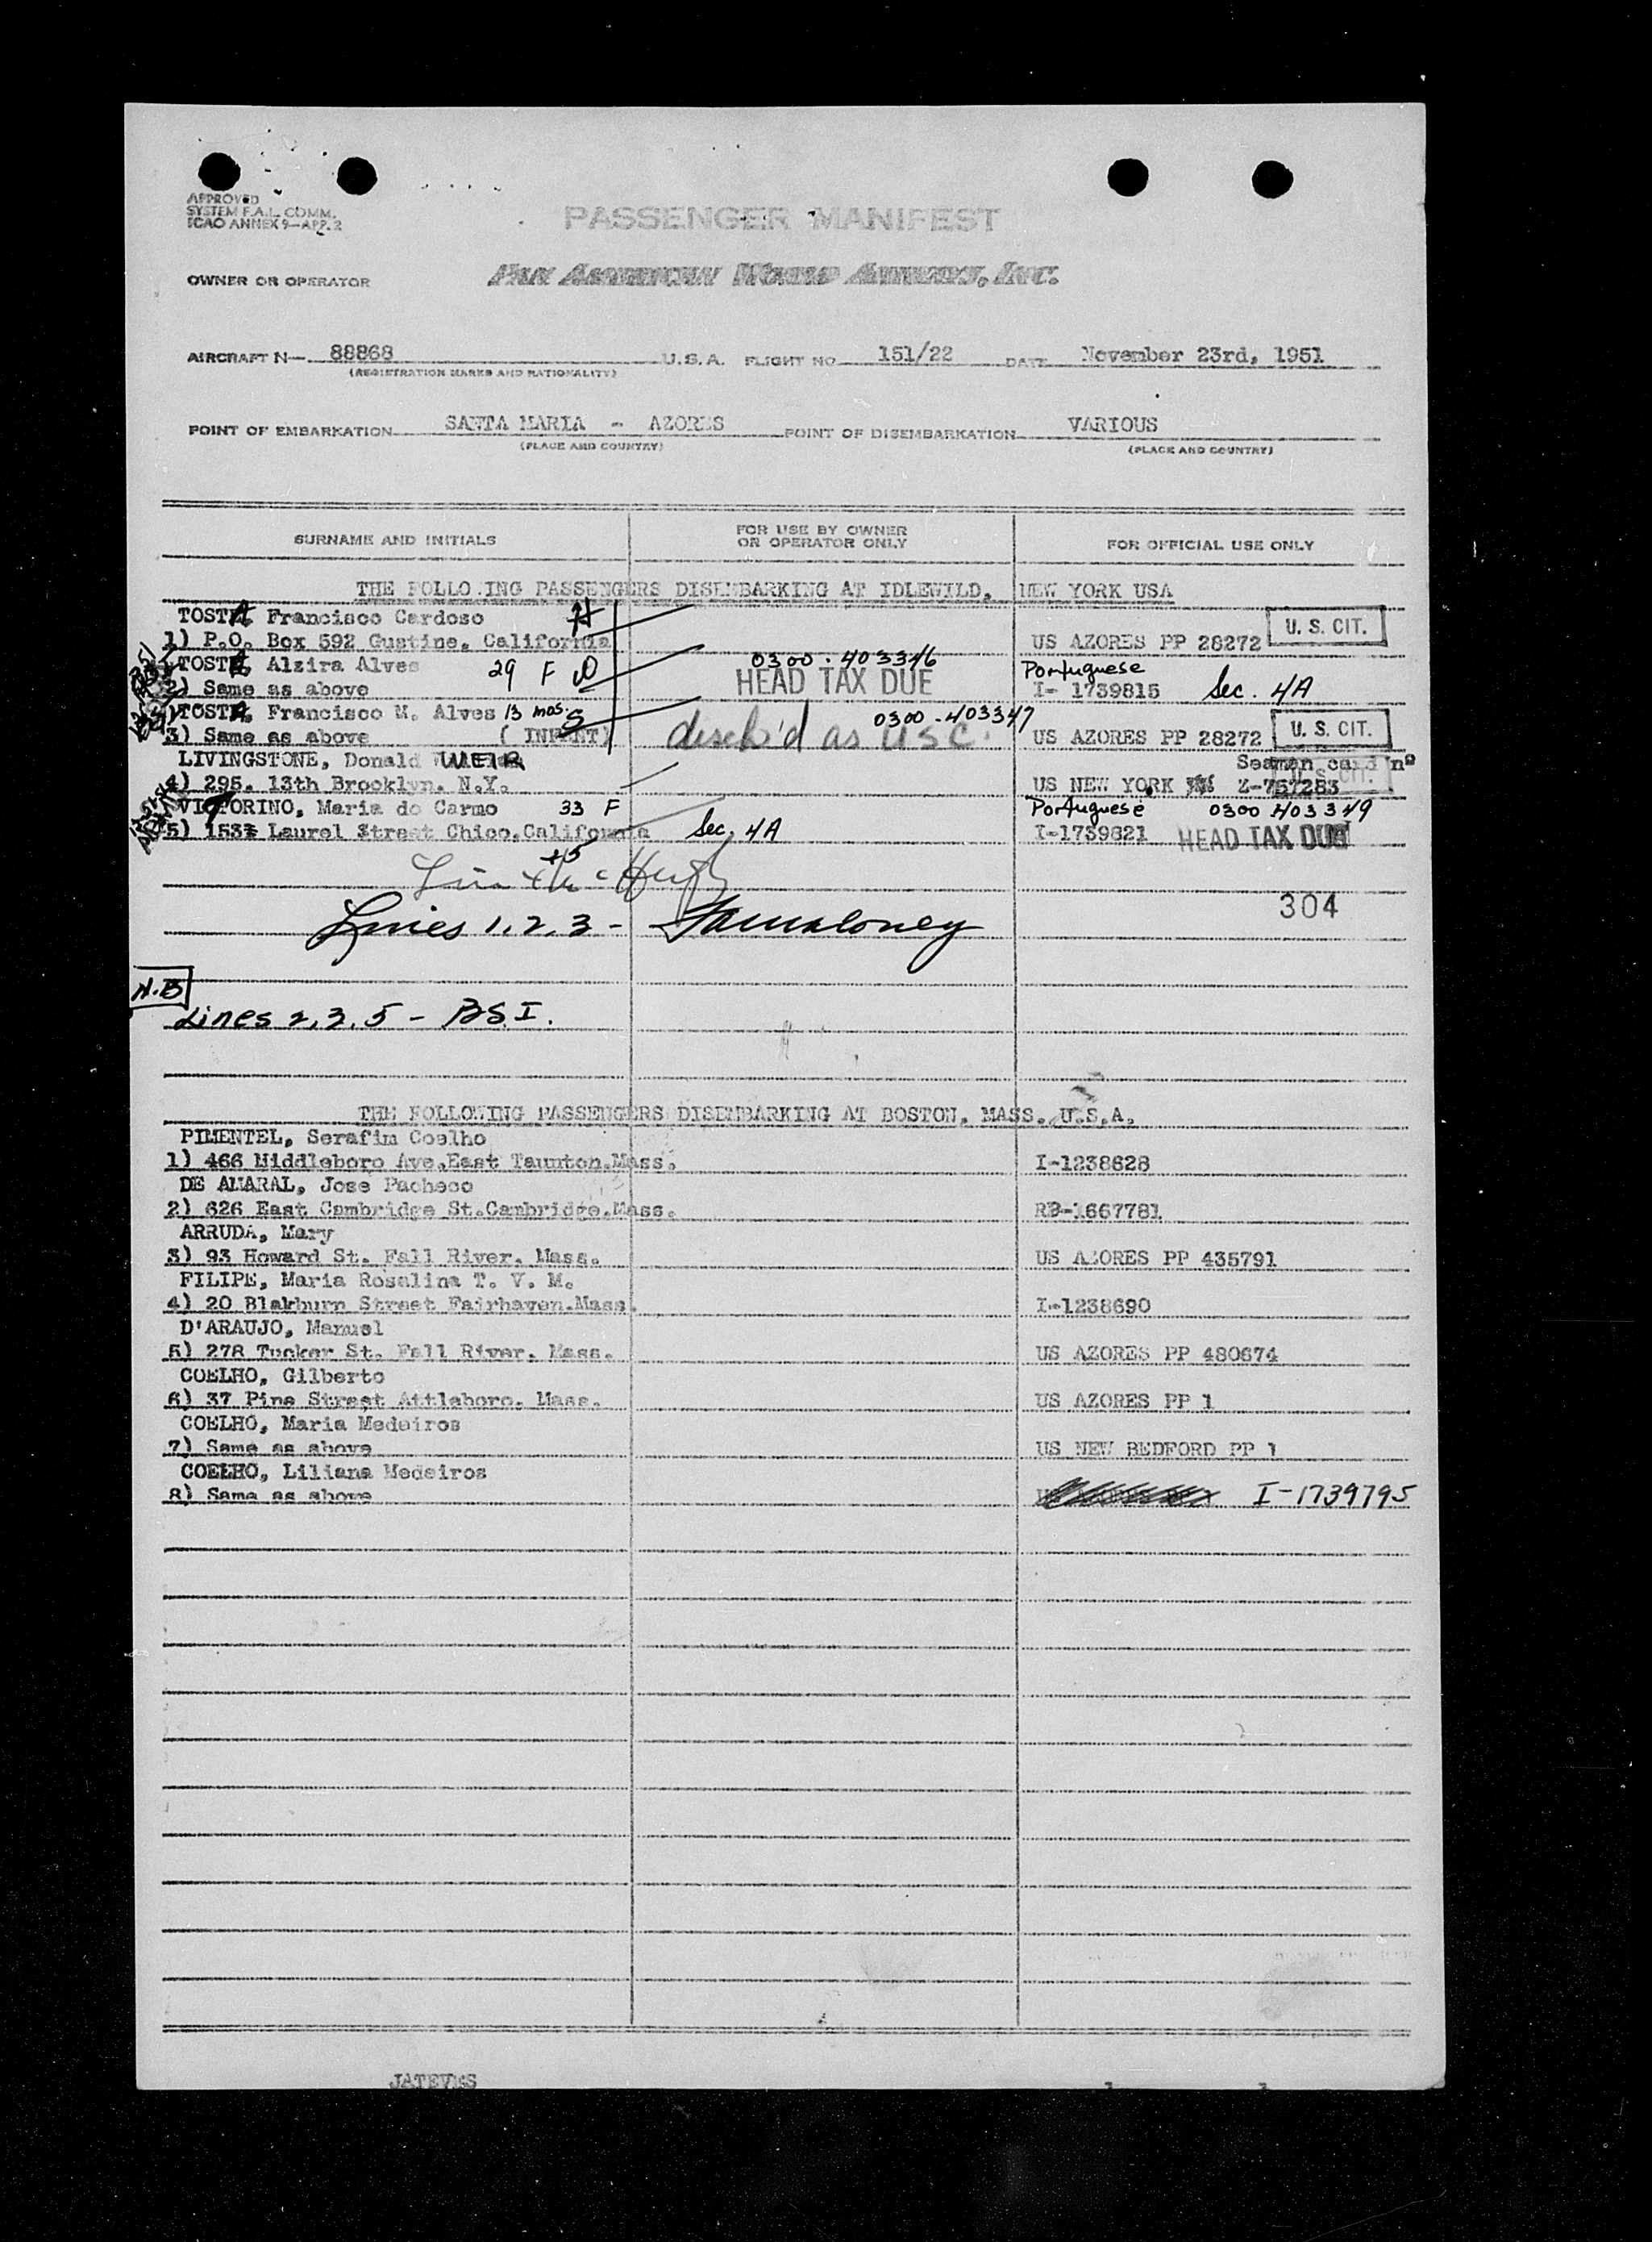 APPROVED
SYSTEM F.A.L. COMM.
ICAO ANNEX 9—APP. 2
PASSENGER MANIFEST
OWNER OR OPERATOR PAN AMERICAN WORLD AIRWAYS, INC.
AIRCRAFT N— 88868 U.S.A. FLIGHT NO 151/22 DATE November 23rd, 1951
(REGISTRATION MARKS AND NATIONALITY)
POINT OF EMBARKATION SANTA MARIA - AZORES POINT OF DISEMBARKATION VARIOUS
(PLACE AND COUNTRY) (PLACE AND COUNTRY)
SURNAME AND INITIALS FOR USE BY OWNER OR OPERATOR ONLY FOR OFFICIAL USE ONLY
THE FOLLO ING PASSENGERS DISEMBARKING AT IDLEWILD, NEW YORK USA
TOSTA, Francisco Cardoso
1) P.O. Box 592 Gustine, California US AZORES PP 28272 U. S. CIT.
TOSTA, Alzira Alves 29 F 0300-403346 Portuguese
2) Same as above HEAD TAX DUE I- 1739815 Sec. 4A
TOSTA, Francisco M. Alves 13 mos. S 0300-403347
3) Same as above ( INFANT) disch'd as USC. US AZORES PP 28272 U. S. CIT.
LIVINGSTONE, Donald WEIR Seaman card nº
4) 295. 13th Brooklyn. N.Y. US NEW YORK Z-757283 U. S. CIT.
VITORINO, Maria do Carmo 33 F Portuguese 0300 403349
5) 153 Laurel Street Chico, California Sec. 4A I-1739821 HEAD TAX DUE
304
Lines 1, 2, 3 -
N.B
Lines 2, 3, 5 - BSI.
THE FOLLOWING PASSENGERS DISEMBARKING AT BOSTON, MASS. U.S.A.
PIMENTEL, Serafim Coelho
1) 466 Middleboro Ave. East Taunton. Mass. I-1238628
DE AMARAL, Jose Pacheco
2) 626 East Cambridge St. Cambridge. Mass. RB-1667781
ARRUDA, Mary
3) 93 Howard St. Fall River. Mass. US AZORES PP 435791
FILIPE, Maria Rosalina T. V. M.
4) 20 Blakburn Street Fairhaven. Mass. I-1238690
D'ARAUJO, Manuel
5) 278 Tucker St. Fall River. Mass. US AZORES PP 480674
COELHO, Gilberto
6) 37 Pine Street Attleboro. Mass. US AZORES PP 1
COELHO, Maria Medeiros
7) Same as above US NEW BEDFORD PP 1
COELHO, Liliana Medeiros
8) Same as above I-1739795
JATEVES